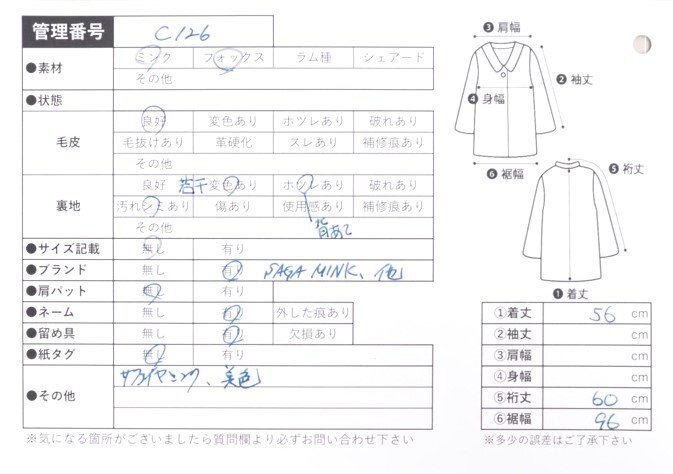 管理番号 C126
●素材 ミンク フォックス ラム種 シェアード
その他
●状態
毛皮 良好 変色あり ホツレあり 破れあり
毛抜けあり 革硬化 スレあり 補修痕あり
その他
裏地 良好 若干 変色あり ホツレあり 破れあり
汚れシミあり 傷あり 使用感あり 補修痕あり
その他 背あて
●サイズ記載 無し 有り
●ブランド 無し 有り SAGA MINK、他
●肩パット 無し 有り
●ネーム 無し 有り 外した痕あり
●留め具 無し 有り 欠損あり
●紙タグ 無し 有り
●その他 サファイヤミンク、美色
※気になる箇所がございましたら質問欄より必ずお問い合わせ下さい
❸肩幅
❷袖丈
❹身幅
❻裾幅
❺裄丈
❶着丈
①着丈 56 cm
②袖丈 cm
③肩幅 cm
④身幅 cm
⑤裄丈 60 cm
⑥裾幅 96 cm
※多少の誤差はご了承下さい